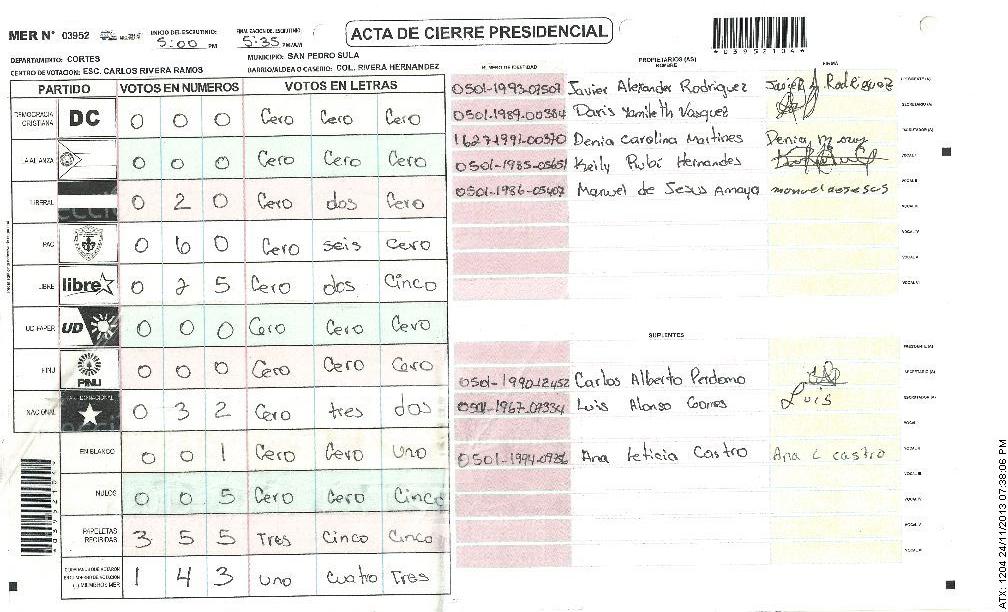 MER N° 03952
INICIO DEL ESCRUTINIO: 5:00 PM
FINALIZACION DEL ESCRUTINIO: 5:35 PM/AM
ACTA DE CIERRE PRESIDENCIAL
DEPARTAMENTO: CORTES
MUNICIPIO: SAN PEDRO SULA
CENTRO DE VOTACION: ESC. CARLOS RIVERA RAMOS
BARRIO/ALDEA O CASERIO: COL. RIVERA HERNANDEZ
PARTIDO VOTOS EN NUMEROS VOTOS EN LETRAS
DEMOCRACIA CRISTIANA DC 0 0 0 Cero Cero Cero
LA ALIANZA 0 0 0 Cero Cero Cero
LIBERAL 0 2 0 Cero dos Cero
PAC 0 6 0 Cero seis Cero
LIBRE libre 0 2 5 Cero dos Cinco
UD-FAPER UD 0 0 0 Cero Cero Cero
PINU PINU 0 0 0 Cero Cero Cero
NACIONAL 0 3 2 Cero tres dos
EN BLANCO 0 0 1 Cero Cero uno
NULOS 0 0 5 Cero Cero Cinco
PAPELETAS RECIBIDAS 3 5 5 Tres Cinco Cinco
1 4 3 uno cuatro Tres
NUMERO DE IDENTIDAD PROPIETARIOS (AS) NOMBRE FIRMA
0501-1993-07509 Javier Alexander Rodriguez Javier A. Rodriguez PRESIDENTE(A)
0501-1989-00384 Doris Yamileth Vasquez SECRETARIO (A)
1627-1991-00370 Denia Carolina Martines Denia ESCRUTADOR (A)
0501-1985-05651 Keily Rubi Hernandes VOCAL I
0501-1986-05407 Manuel de Jesus Amaya manuel de jesus VOCAL II
VOCAL III
VOCAL IV
VOCAL V
VOCAL VI
SUPLENTES
PRESIDENTE (A)
0501-1990-12452 Carlos Alberto Perdomo SECRETARIO (A)
0501-1967-07334 Luis Alonso Gomes Luis ESCRUTADOR (A)
VOCAL I
0501-1994-0936 Ana Leticia Castro Ana L castro VOCAL II
VOCAL III
VOCAL IV
VOCAL V
VOCAL VI
ATX: 1204 24/11/2013 07:38:06 PM